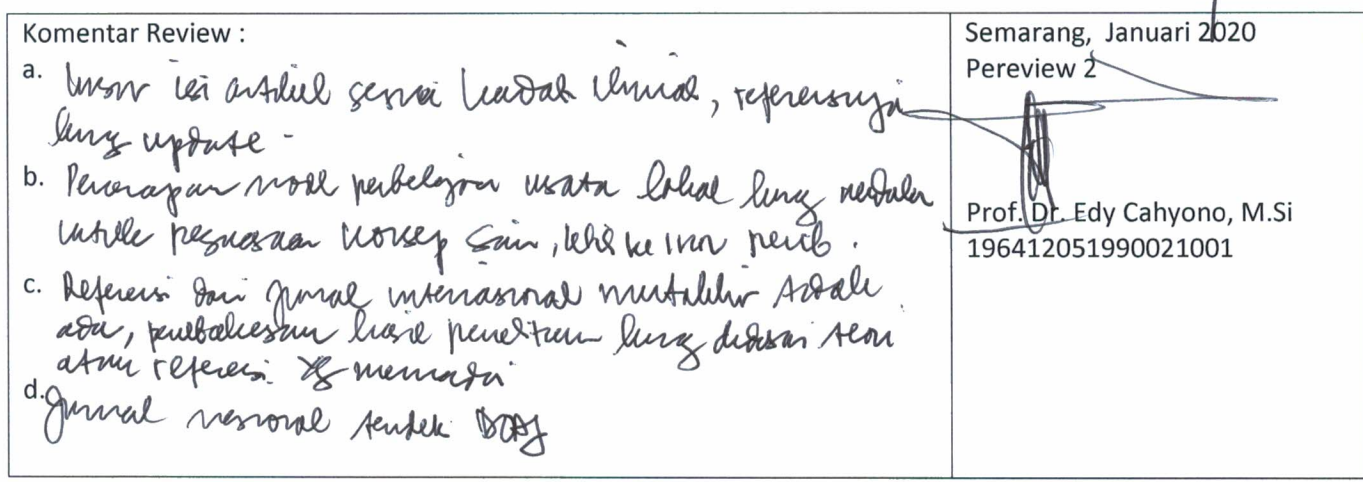 Komentar Review :
a. Unsur isi artikel sesuai kaidah ilmiah, referensinya
kurg update -
b. Penerapan model pembelajaran wisata lokal kurg mendalam
untuk penguasaan konsep sain, lebih ke
c. Referensi dari jurnal internasional mutakhir tidak
ada, pembahasan hasil penelitian kurg didasari teori
atau referensi yg memadai
d. Jurnal nasional terindek DOAJ
Semarang, Januari 2020
Pereview 2
Prof. Dr. Edy Cahyono, M.Si
196412051990021001